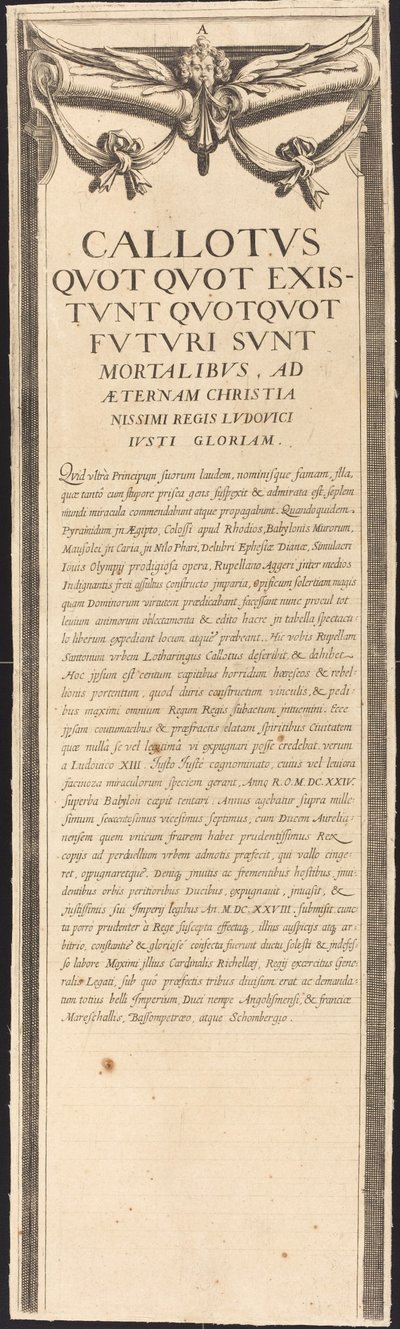 A
CALLOTVS
QVOT QVOT EXIS-
TVNT QVOTQVOT
FVTVRI SVNT
MORTALIBVS, AD
ÆTERNAM CHRISTIA
NISSIMI REGIS LVDOVICI
IVSTI GLORIAM.
Qvid vltrà Principum suorum laudem, nominisque famam, jlla,
quæ tantò cum stupore prisca gens suspexit & admirata est, septem
mundi miracula commendabunt atque propagabunt. Quandoquidem
Pyramidum jn Ægipto, Colossi apud Rhodios, Babylonis Murorum,
Mausolei jn Caria, jn Nilo Phari, Delubri Ephesiæ Dianæ, Simulacri
Iouis Olympij prodigiosa opera, Rupellano Aggeri jnter medios
Indignantis freti assultus constructo jmparia, opificum solertiam magis
quam Dominorum virtutem prædicabant, facessant nunc procul tot
leuium animorum oblectamenta & edito hacre jn tabella spectacu-
lo liberum expediant locum atque præbeant. Hic vobis Rupellam
Santonum vrbem Lotharingus Callotus describit & exhibet
Hoc jpsum est centum capitibus horridum hæreseos & rebel-
lionis portentum, quod duris constrictum vinculis, & pedi-
bus maximi omnium Regum Regis subactum jntuemini. Ecce
jpsam contumacibus & præfractis elatam spiritibus Ciuitatem
quæ nullâ se vel legitimâ vi expugnari posse credebat. verum
a Ludouico XIII. Justo Justè cognominato, cuius vel leuiora
facinora miraculorum speciem gerant, Anno R.O.M.DC.XXIV.
superba Babylon cæpit tentari: Annus agebatur supra mille-
simum sexcentesimus vicesimus septimus, cum Ducem Aurelia-
nensem quem vnicum fratrem habet prudentissimus Rex
copijs ad perduellum vrbem admotis præfecit, qui vallo cinge-
ret, oppugnaretque. Deniq, jnuitis ac frementibus hostibus, jnui-
dentibus orbis peritioribus Ducibus, expugnauit, jnuasit, &
justissimis sui Jmperij legibus An. M.DC.XXVIII. submisit. cunc-
ta porro prudenter à Rege suscepta effectaq, illius auspicijs atq ar-
bitrio, constanter & gloriosè confecta fuerunt ductu solesti & indefes-
so labore Maximi jllius Cardinalis Richellæj, Regij exercitus Gene-
ralis Legati, sub quo præfectis tribus diuisum erat ac demanda-
tum totius belli Jmperium, Duci nempe Angolismensi, & franciæ
Mareschallis, Bassompetræo, atque Schombergio.